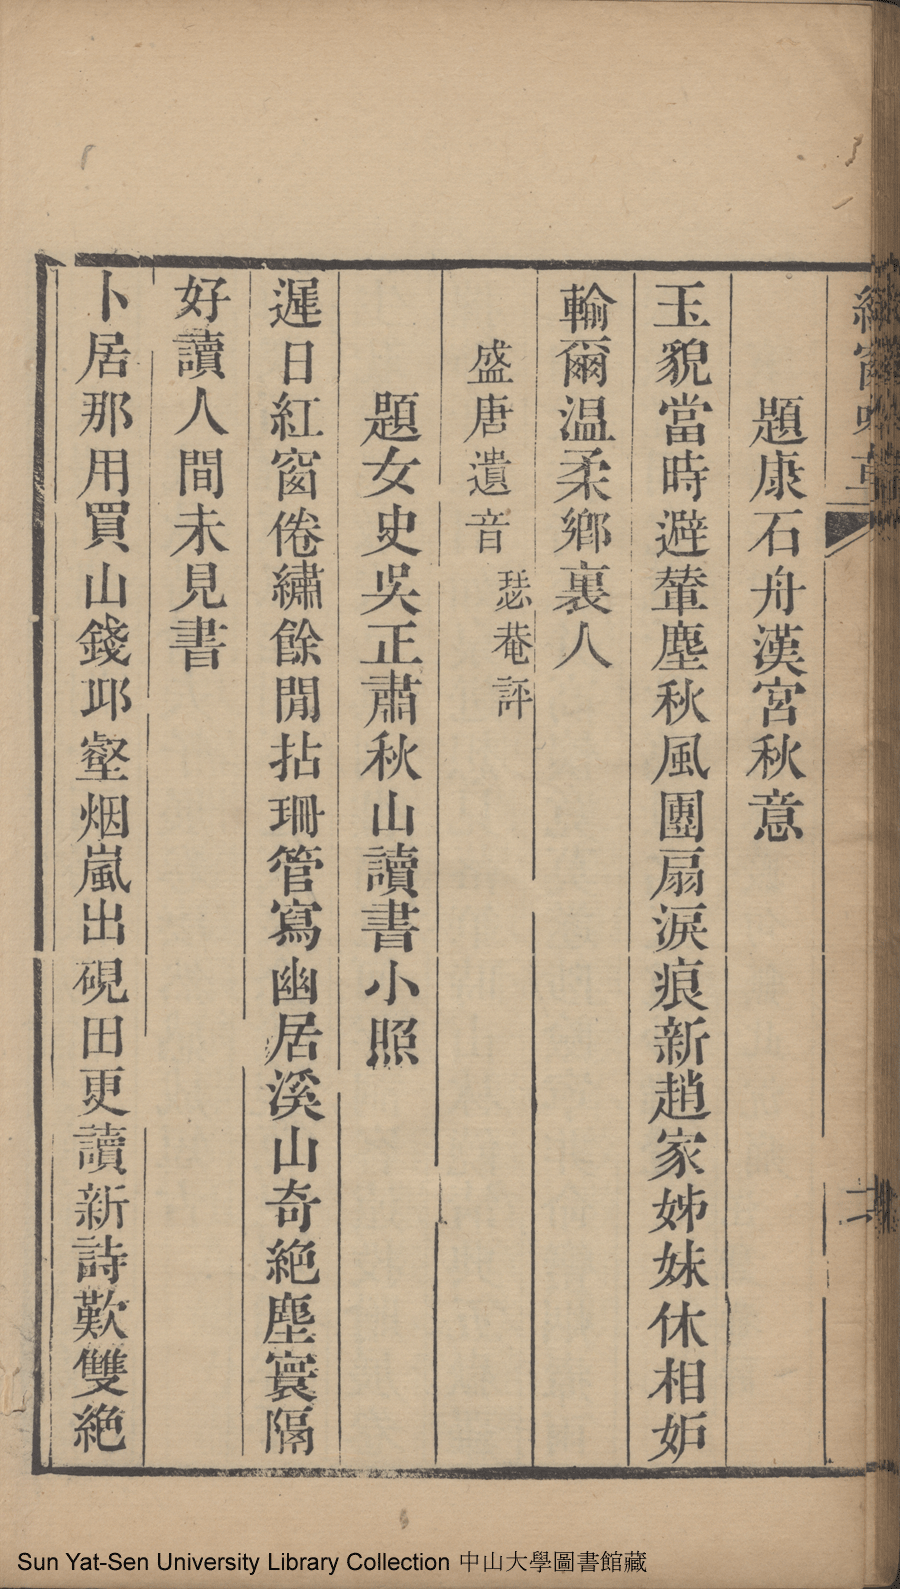 題康石舟漢宮秋意
玉貌當時避輦塵秋風團扇淚痕新趙家姊妹休相妒
輸爾温柔鄉裏人
盛唐遺音
瑟菴評
題女史吳正肅秋山讀書小照
遲日紅窗倦繡餘閒拈珊管寫幽居溪山奇絶塵寰隔
好讀人間未見書
卜居那用買山錢邛壑烟嵐出硯田更讀新詩歎雙絶
Sun Yat-Sen University Library Collection 中山大學圖書館藏